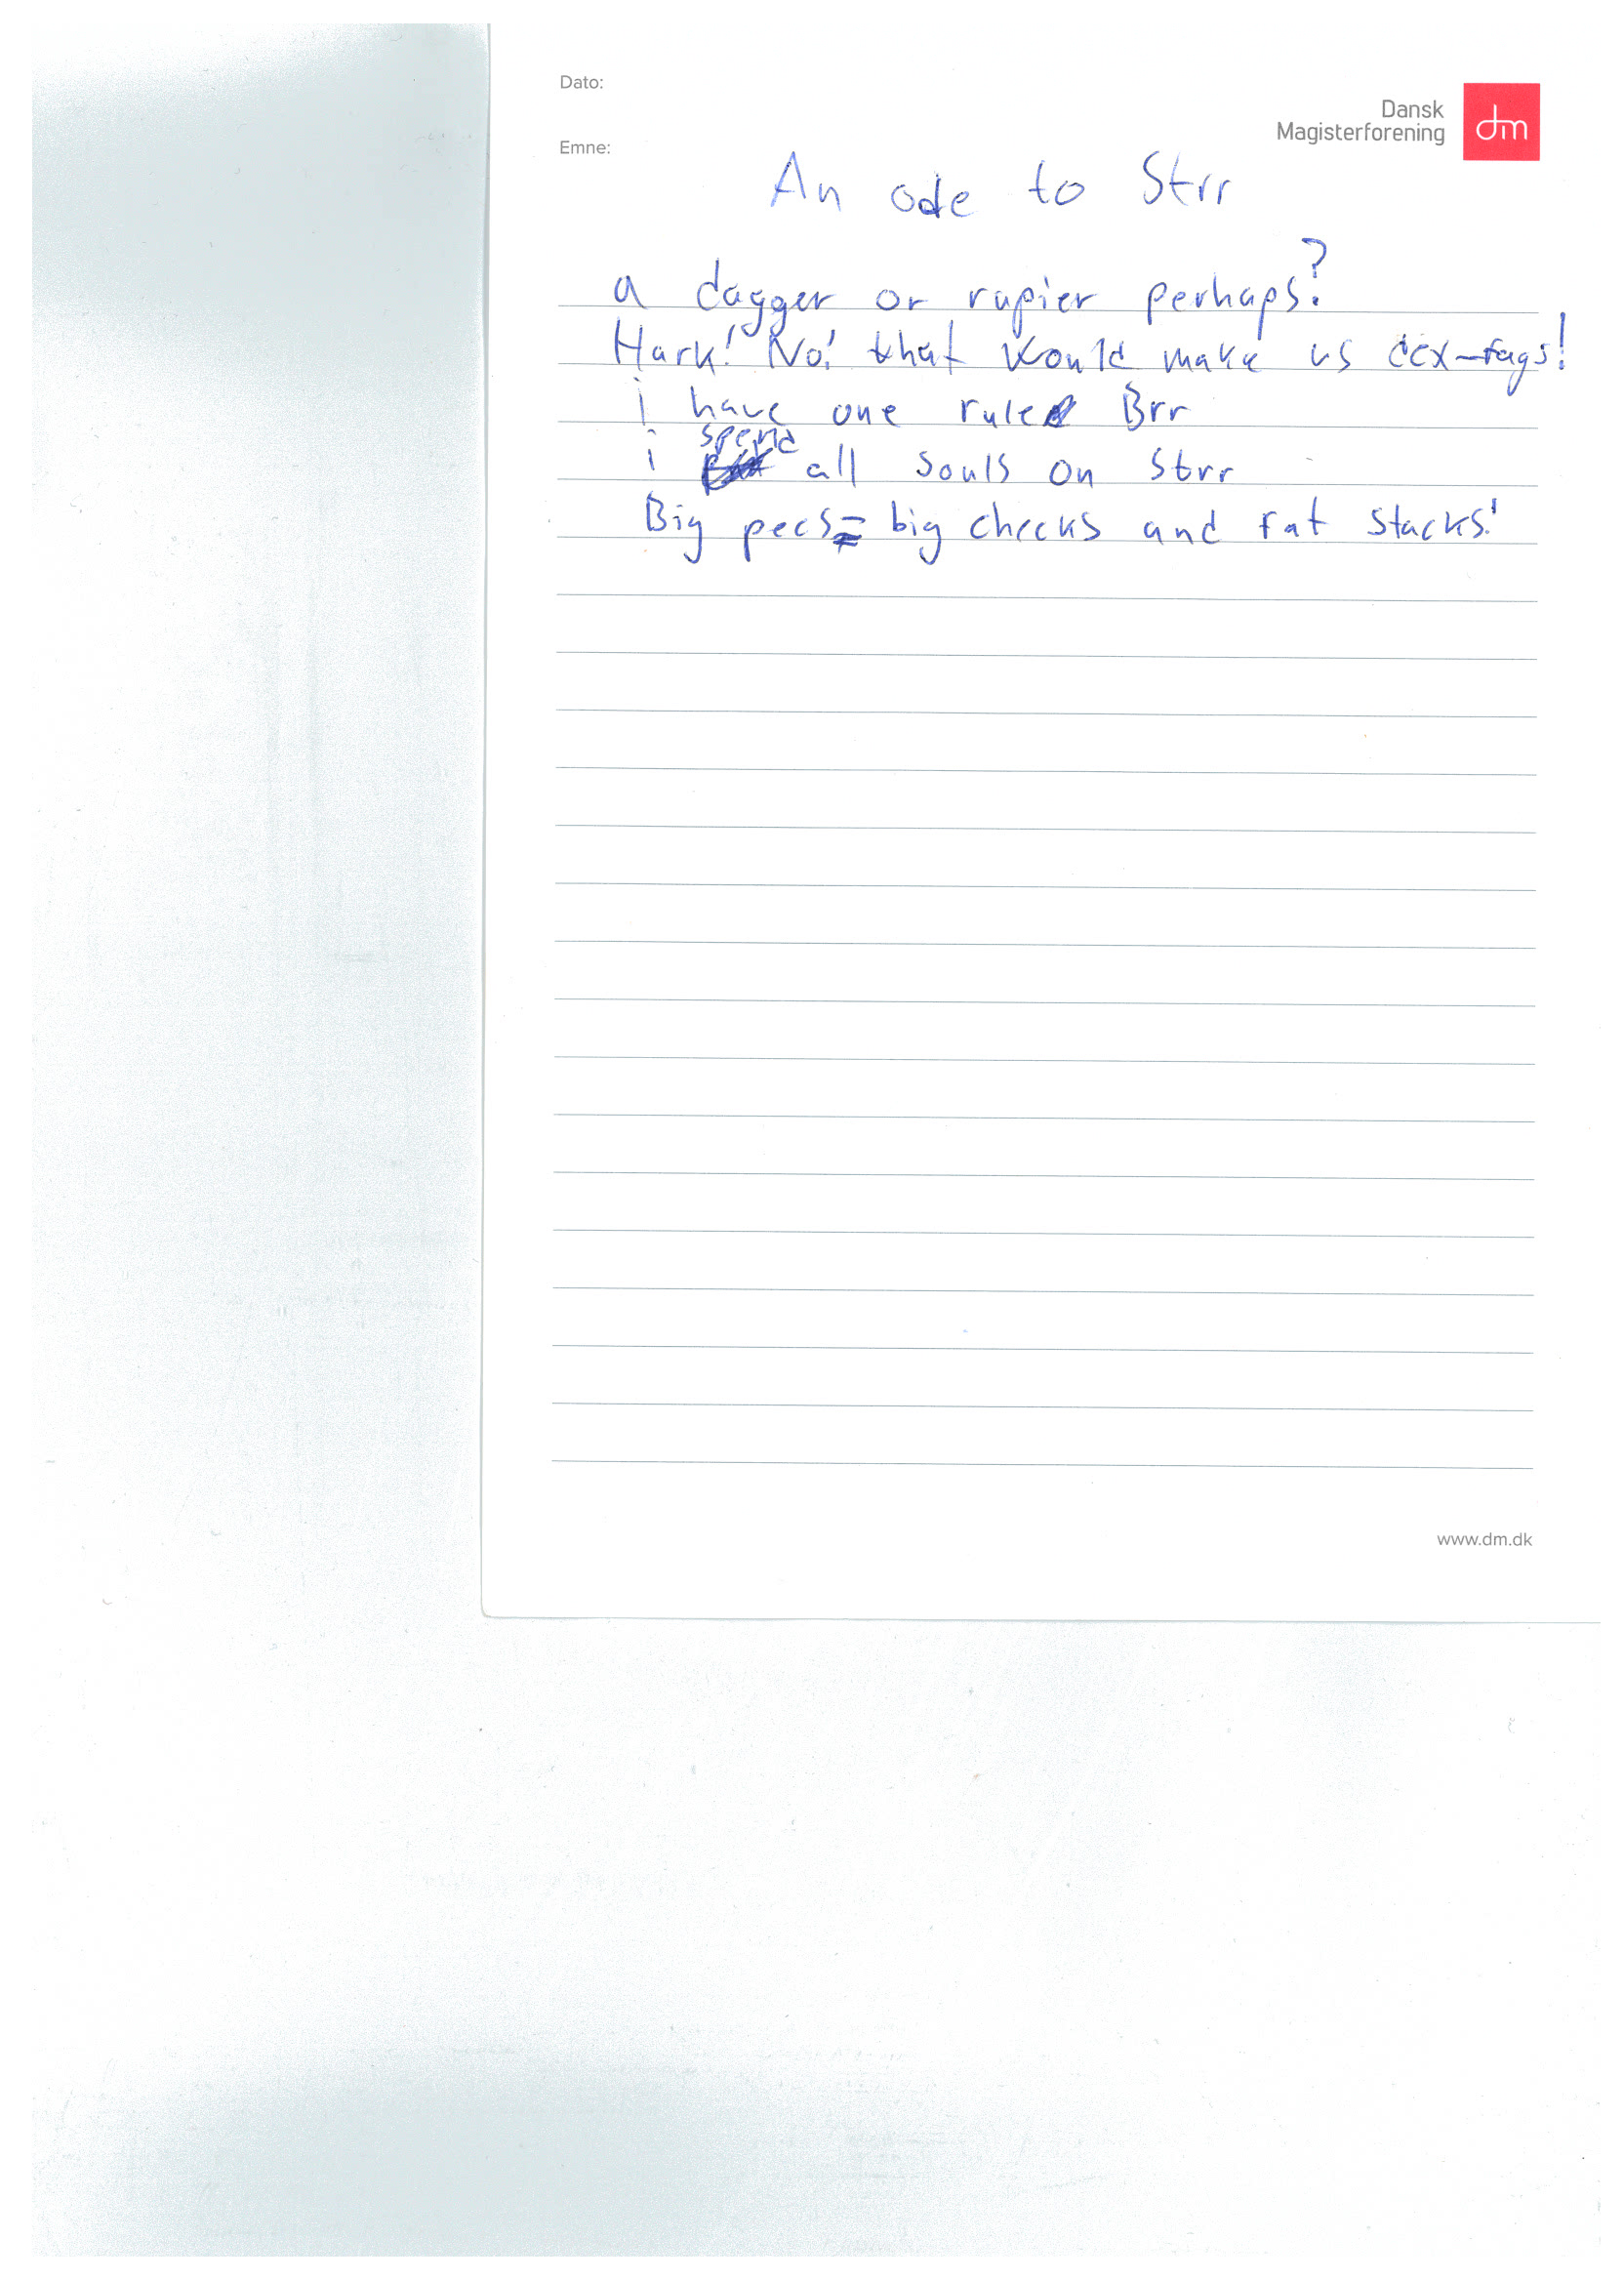 Dato:
Dansk
Magisterforening
dm
Emne:
An ode to Strr
a dagger or rapier perhaps?
Hark! No! that would make us dex-fags!
i have one rule Brr
i spend all souls on Strr
Big pecs = big checks and fat stacks!
www.dm.dk